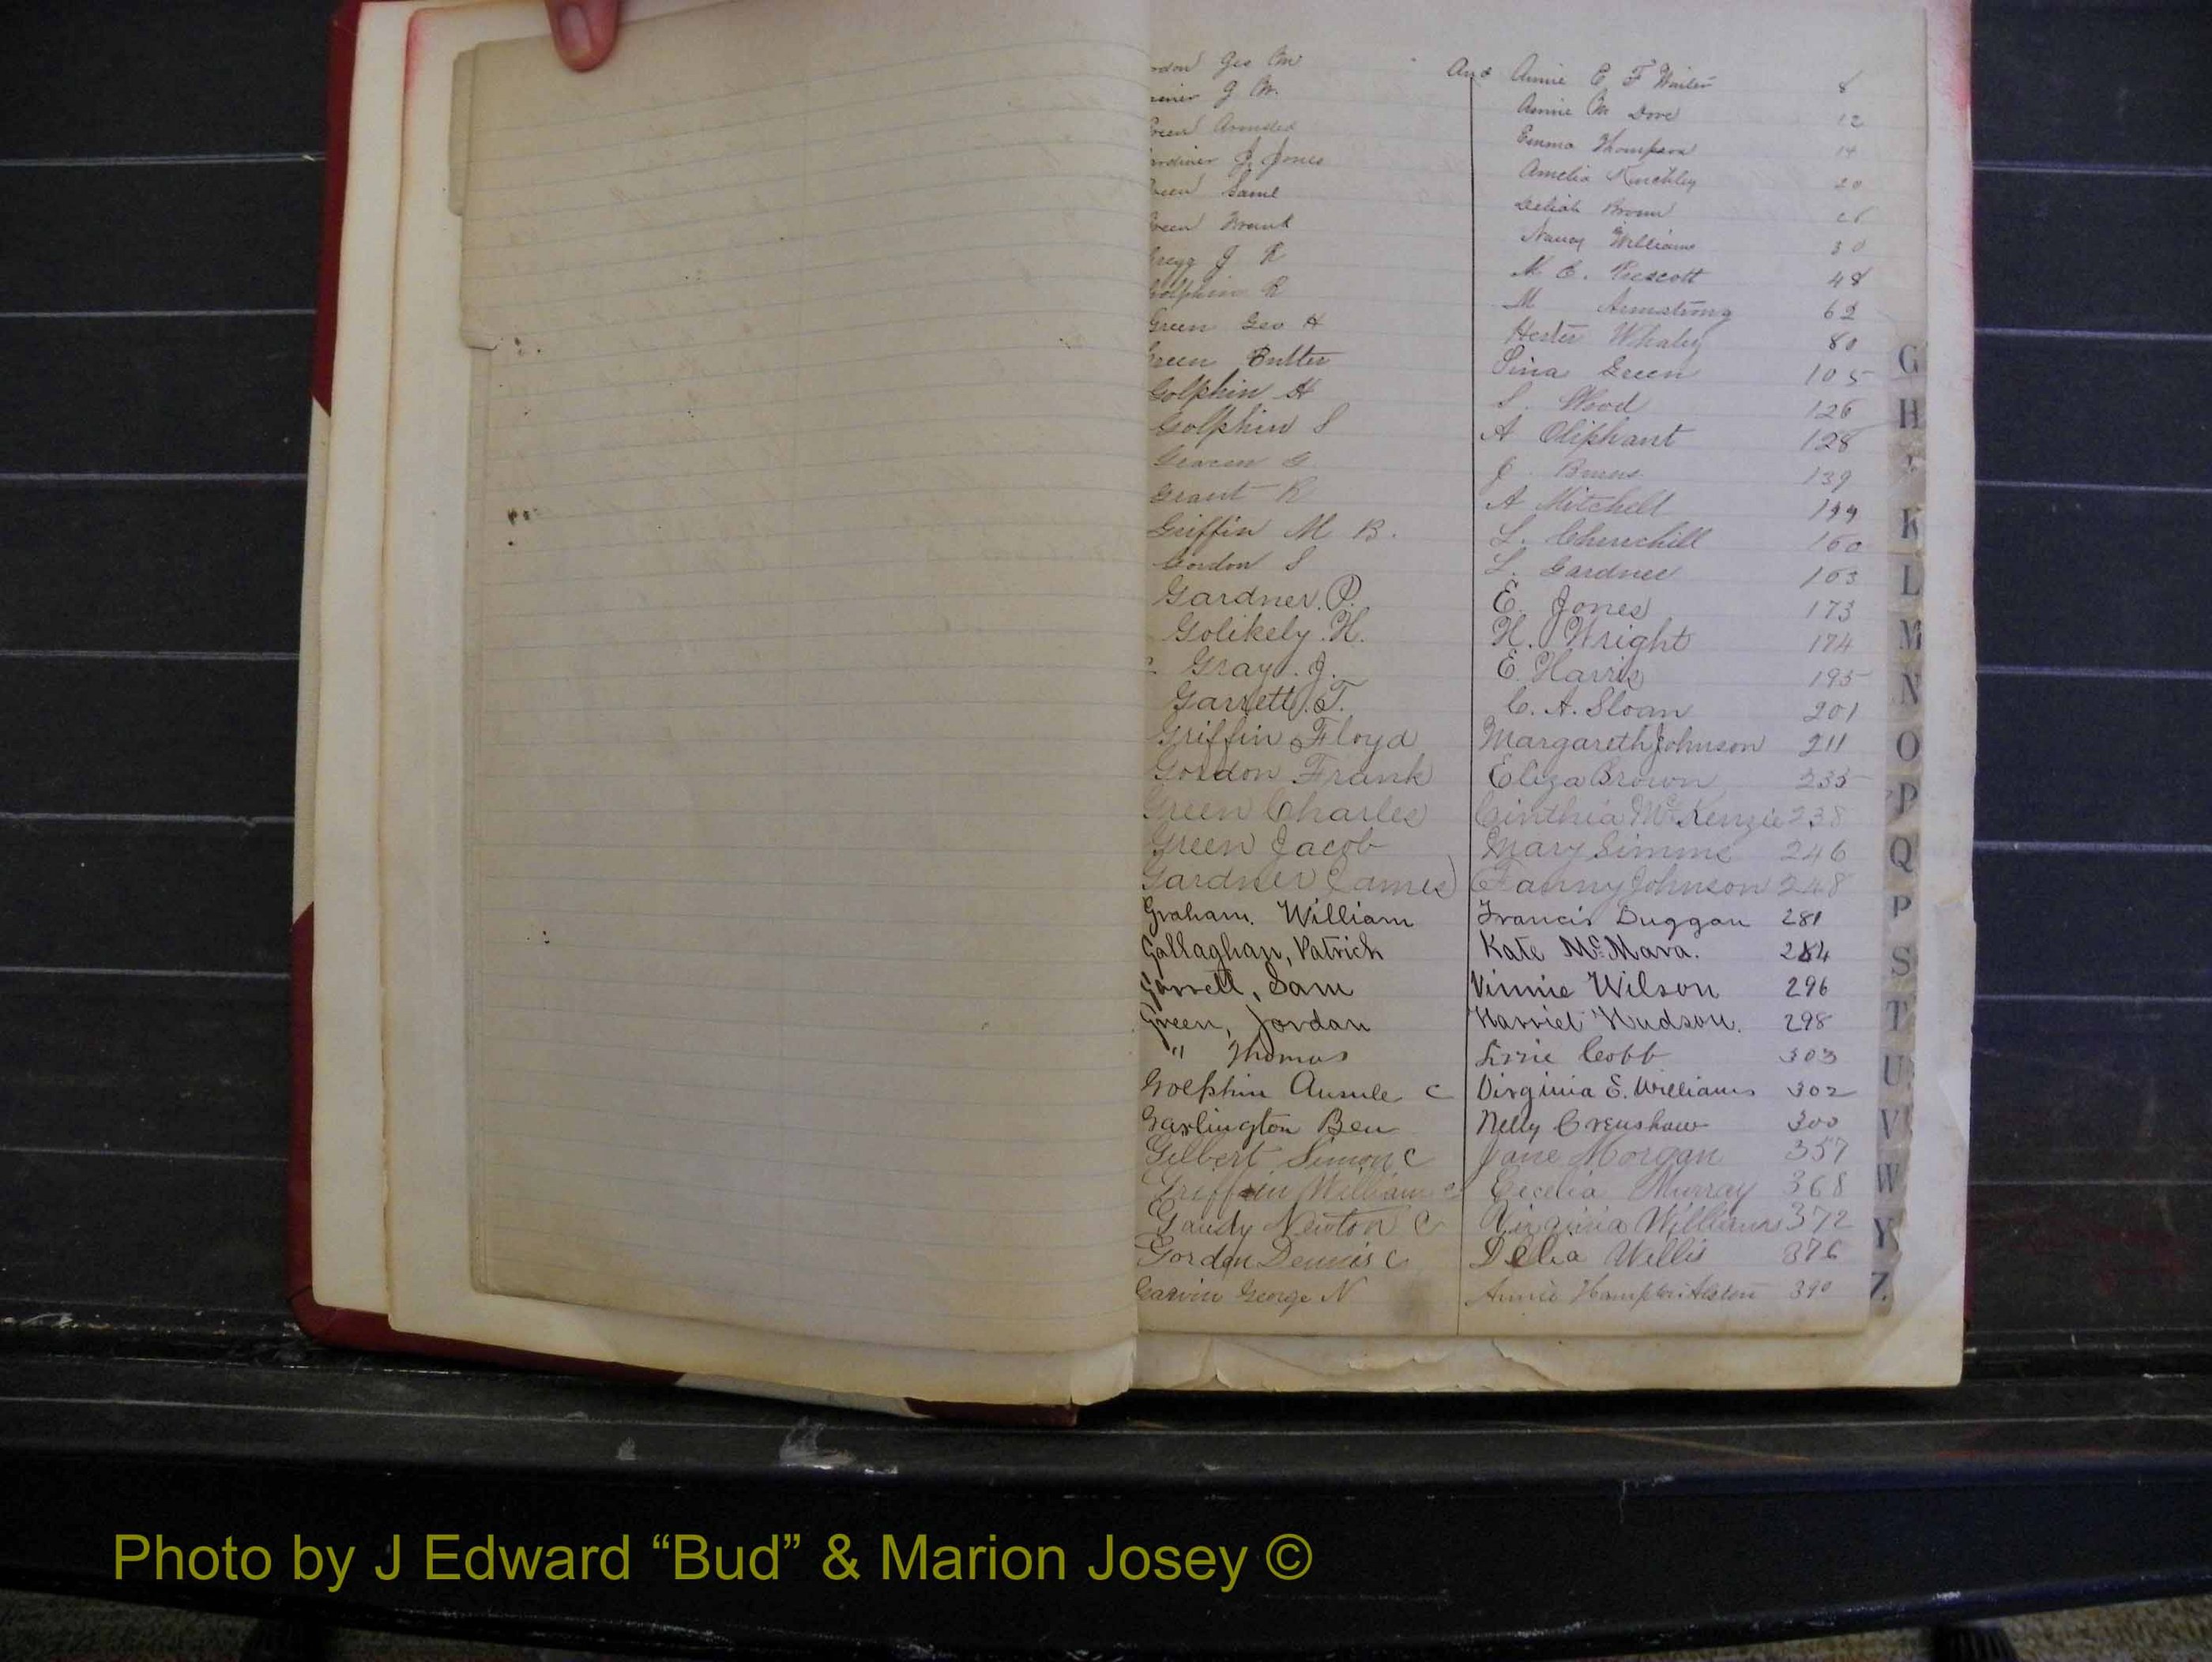 Geo M And Annie E F Winter 8
J W. Annie M Dove 12
Green Armsted Emma Thompson 14
Gardiner J. Jones Amelia Kinchley 20
Green Saml Deliah Brown 26
Green Frank Nancy Williams 30
Gregg J R M E. Prescott 48
Golphin R M Armstrong 62
Green Geo H Hester Whaley 80
Green Butler Sina Green 105
Golphin H S. Wood 126
Golphin S A Oliphant 128
G J. Burns 139
Grant R A Mitchell
Griffin M B. L. Churchill 160
Gordon S L. Gardner 163
Gardner. P. E. Jones 173
Golikely. H. H. Wright 174
Gray. J. E. Harris 195
Garrett. T. C. A. Sloan 201
Griffin Floyd Margareth Johnson 211
Gordon Frank Eliza Brown 235
Green Charles Cinthia McKenzie 238
Green Jacob Mary Simms 246
Gardner James Fanny Johnson 248
Graham. William Francis Duggan 281
Gallaghan, Patrick Kate McMara. 284
Garrett, Sam Vinnie Wilson 296
Green, Jordan Harriet Hudson. 298
" Thomas Lizzie Cobb 303
Golphin C Virginia E. Williams 302
Garlington Ben Nelly Crenshaw 300
Gilbert Simon C Jane Morgan 357
Griffin William c Cecelia Murray 368
Gandy Newton C Virginia Williams 372
Gordon Dennis C Delia Willis 376
George N Annie Hampton Alston 390
G
H
K
L
M
N
O
P
Q
P
S
T
U
V
W
Y
Z
Photo by J Edward “Bud” & Marion Josey ©